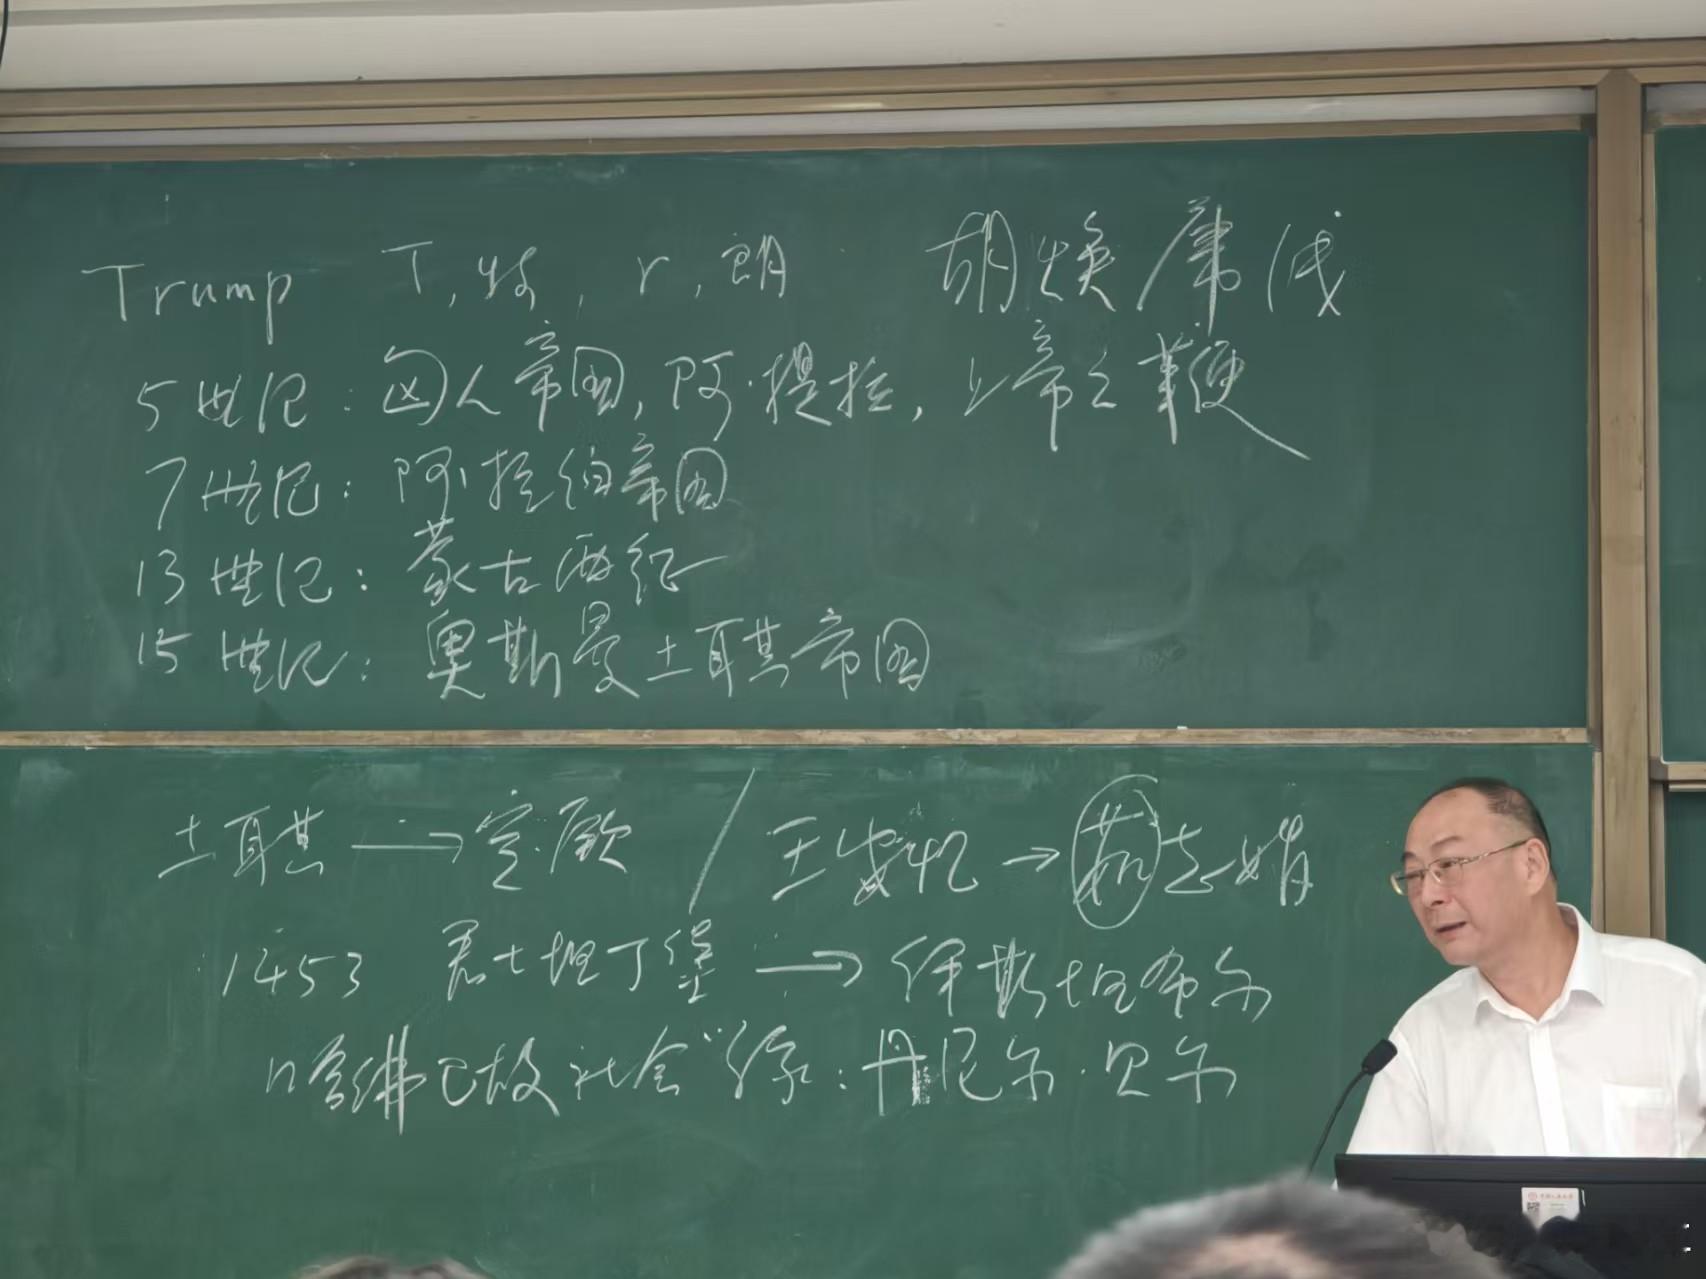 Trump T,特,r,朗 胡焕庸线
5世纪:匈人帝国,阿提拉,上帝之鞭
7世纪:阿拉伯帝国
13世纪:蒙古西征
15世纪:奥斯曼土耳其帝国
土耳其→突厥 / 王安忆→茹志娟
1453 君士坦丁堡→伊斯坦布尔
哈佛已故社会 家:丹尼尔·贝尔